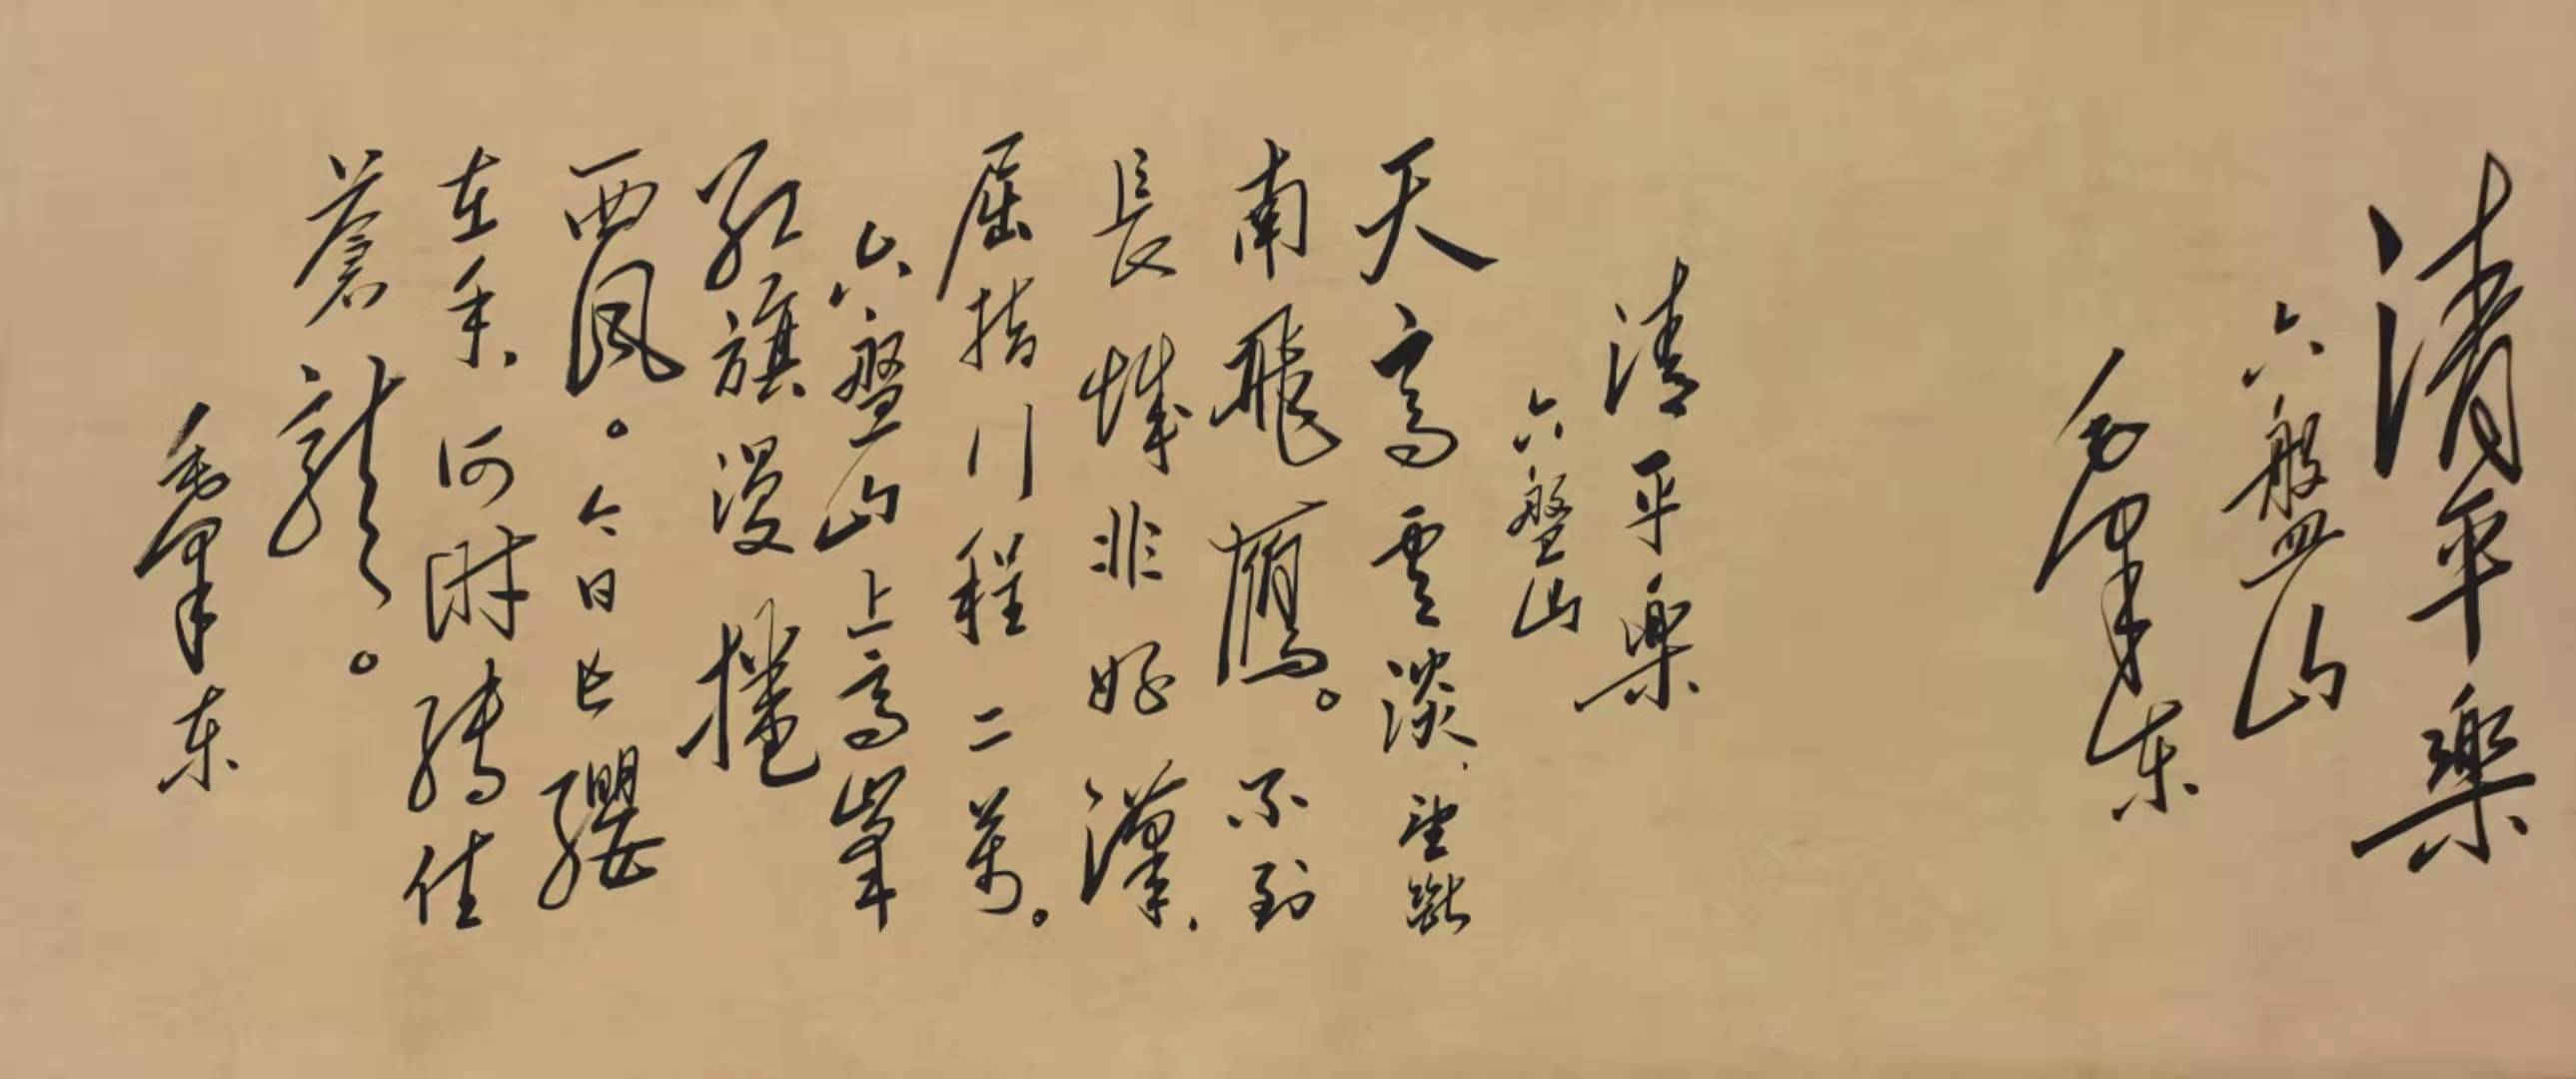 清平樂
六盤山
毛澤东
清平樂
六盤山
天高雲淡,望斷
南飛鴈。不到
長城非好漢,
屈指行程二萬。
六盤山上高峯
红旗漫捲
西風。今日長纓
在手,何時縛住
蒼龍。
毛澤东